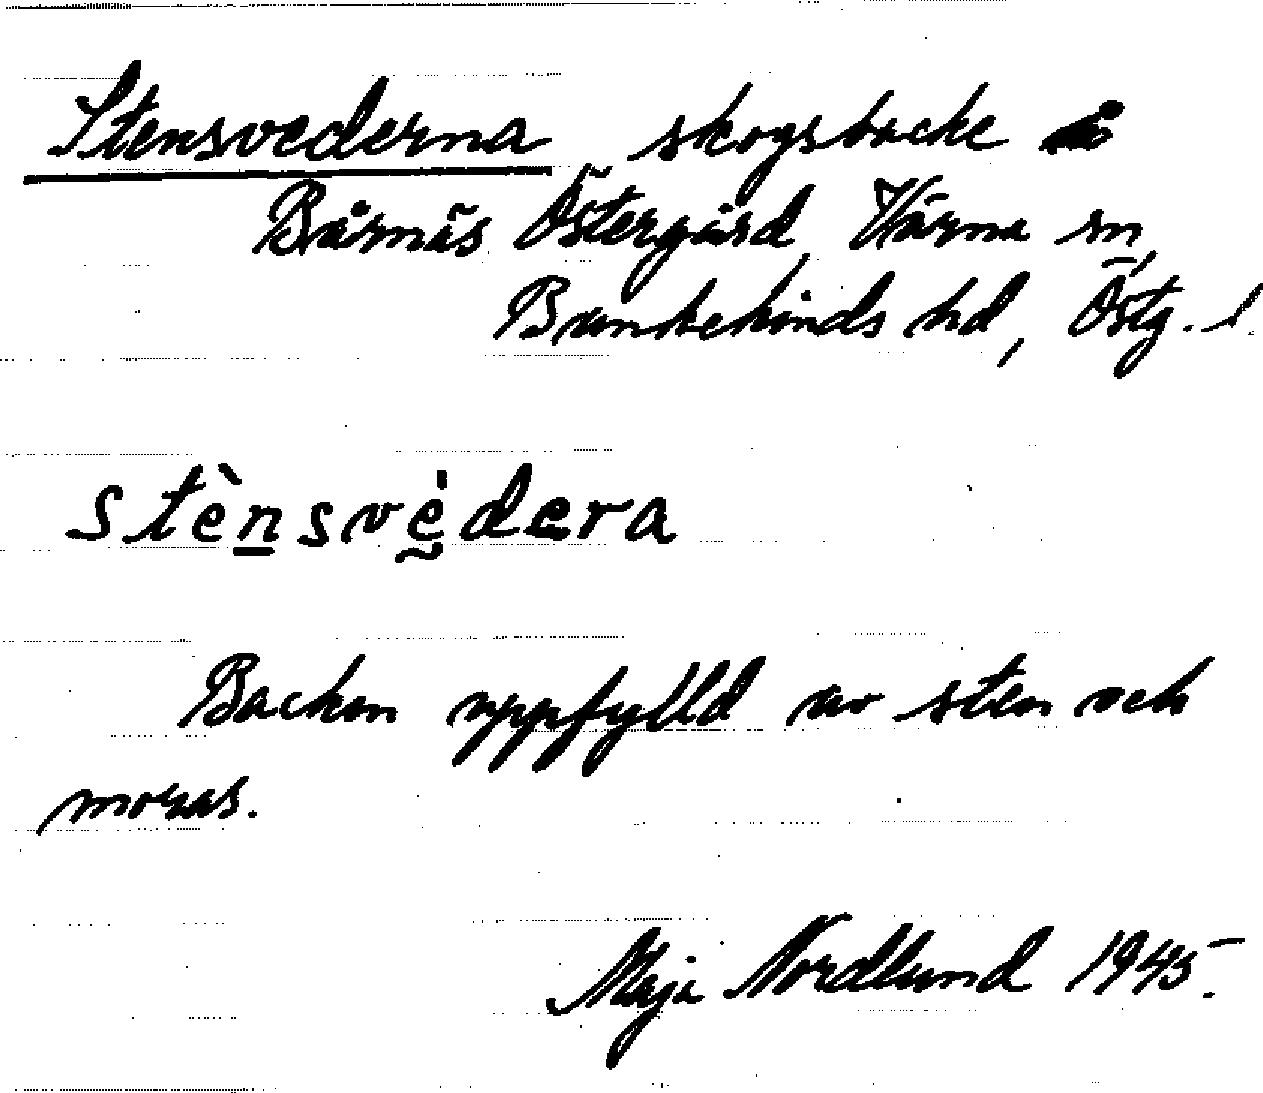 Stensvederna skogsbacke å
Bårnäs Östergård, Värna sn,
Bankekinds hd, Östg. l.
stènsvèdera
Backen uppfylld av sten och
moras.
Maja Nordlund 1945.